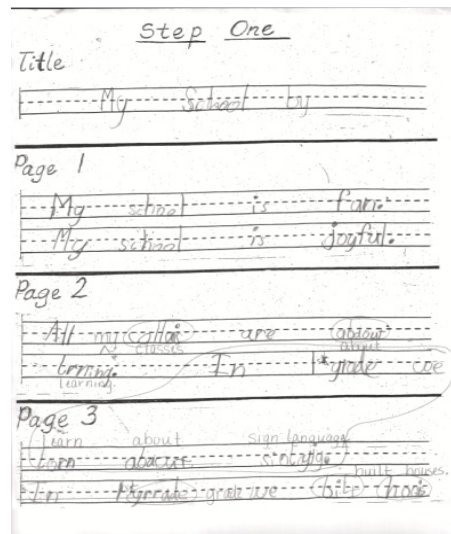 Step One
Title
My School by
Page 1
My school is fan.
My school is joyful.
Page 2
All my are abaowt
classes about
lrning. In 1st grade we
learning.
Page 3
learn about sign language
lorn abaout
built houses.
In 1st grrade grade we bilt